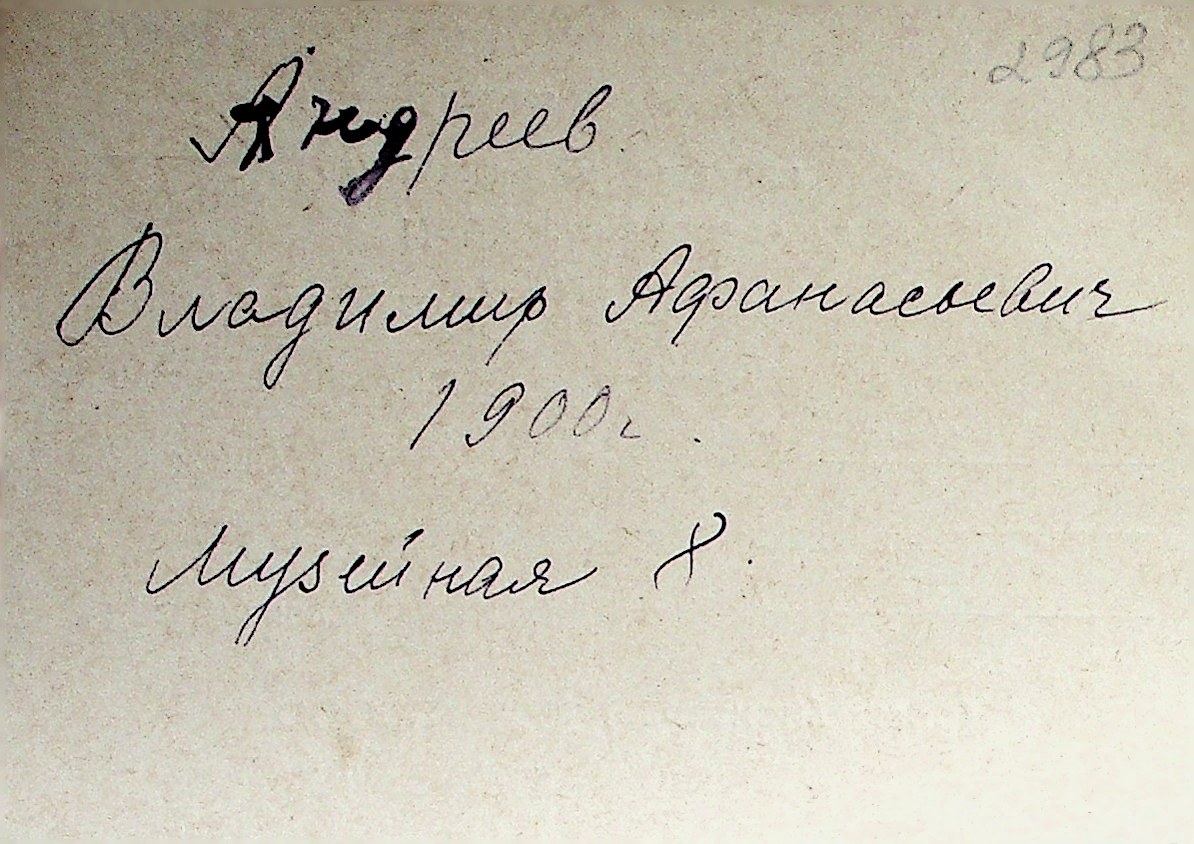 2983
Андреев
Владимир Афанасьевич
1900г.
Музейная 8.